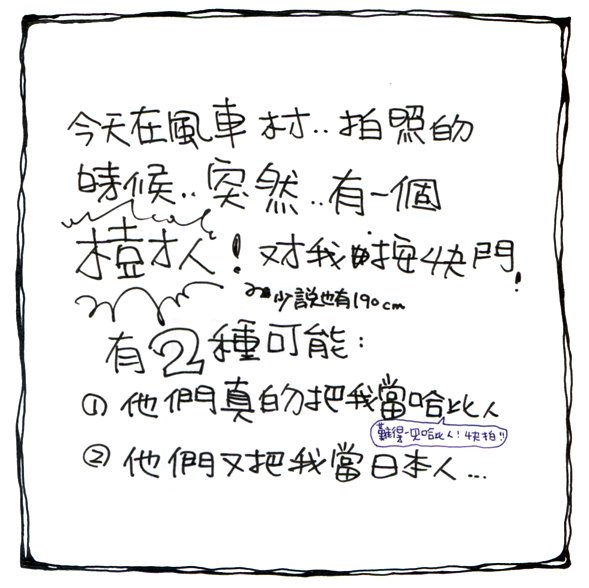 今天在風車村..拍照的
時候..突然..有一個
樹人！对我按快門！
少說也有190cm
有2種可能：
① 他們真的把我當哈比人
難得一見哈比人！快拍!!
② 他們又把我當日本人...